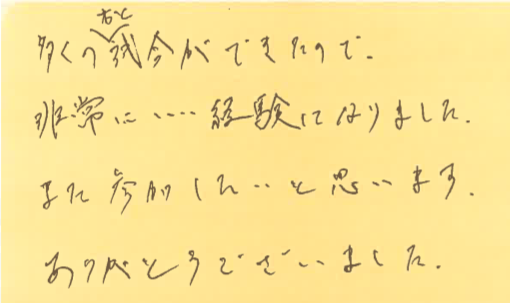 多くの方と試合ができたので、
非常にいい経験になりました。
また参加したいと思います。
ありがとうございました。